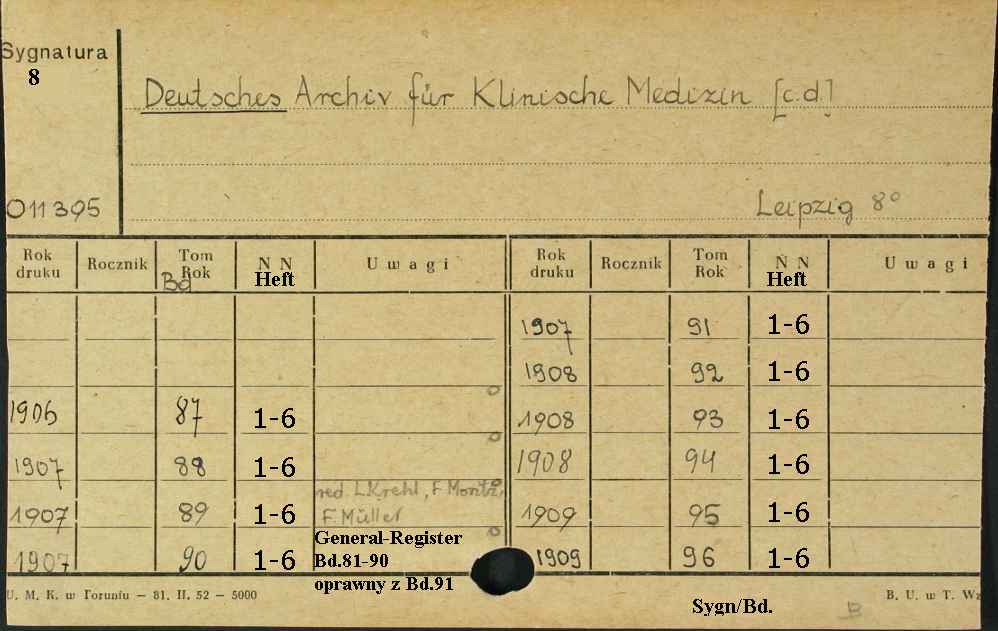 Sygnatura
8
Deutsches Archiv für Klinische Medizin [c.d.]
011395
Leipzig 8°
Rok druku Rocznik Tom Rok Bd NN Heft Uwagi Rok druku Rocznik Tom Rok NN Heft Uwagi
1907 91 1-6
1908 92 1-6
1906 87 1-6 1908 93 1-6
1907 88 1-6 1908 94 1-6
red. L.Krehl, F Moritz,
1907 89 1-6 F. Müller 1909 95 1-6
General-Register
1907 90 1-6 Bd.81-90 1909 96 1-6
oprawny z Bd.91
U. M. K. w Toruniu — 81. II. 52 — 5000 B. U. w T. Wz
Sygn/Bd. B